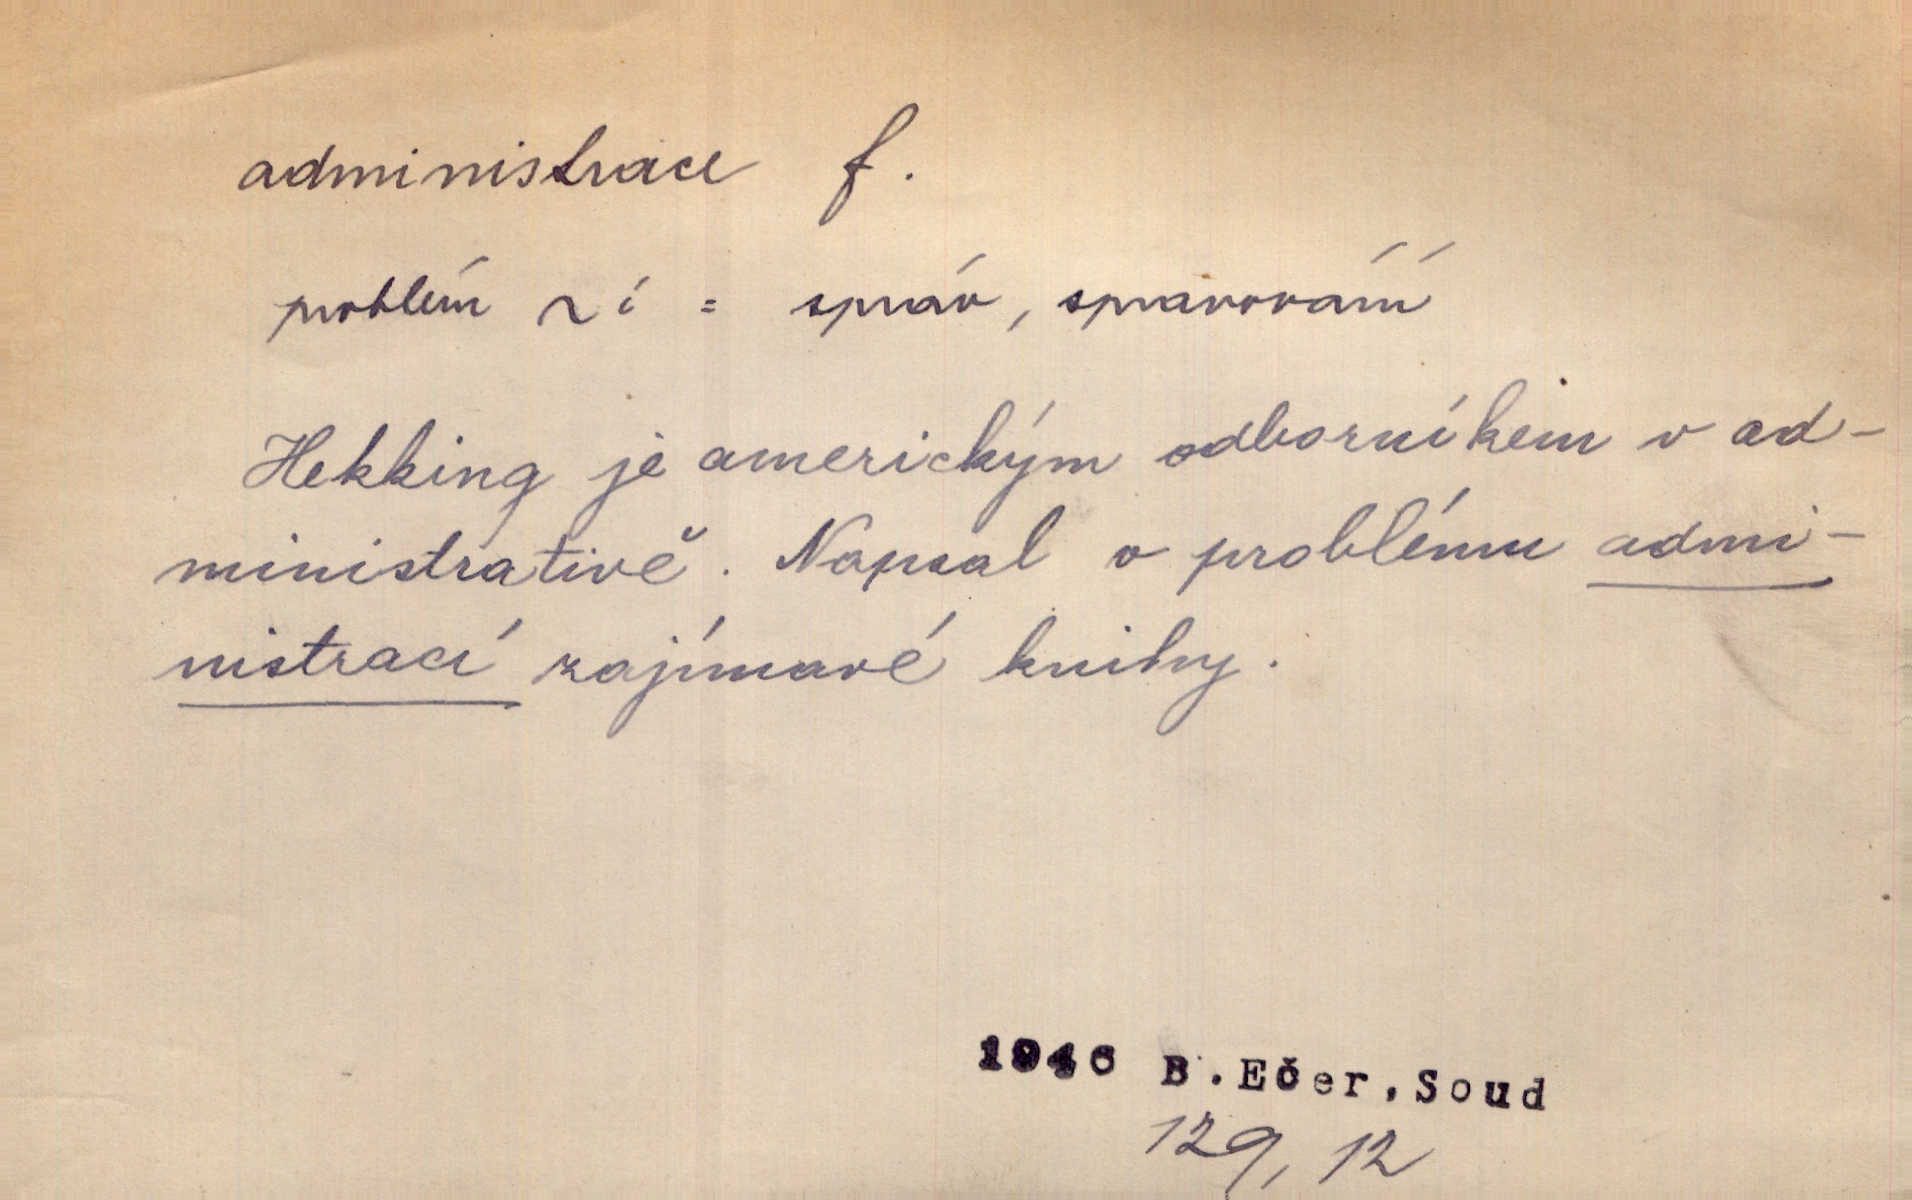 administrace f.
problém ~í = správ, spravování
Hekking je americkým odborníkem v ad-
ministrativě. Napsal o problému admi-
nistrací zajímavé knihy.
1946 B.Ečer,Soud
129, 12